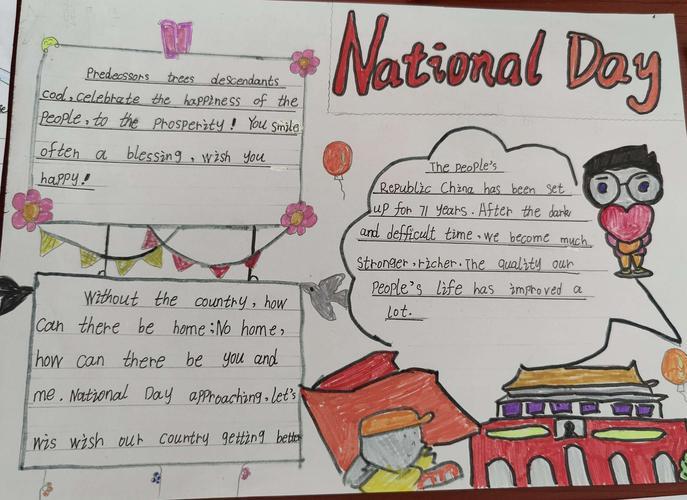 National Day
Predecssors trees descendants
cool, celebrate the happiness of the
People, to the Prosperity! You smile
often a blessing, wish you
happy!
Without the country, how
can there be home; No home,
how can there be you and
me. National Day approaching, let's
wis wish our country getting bette
The people's
Republic China has been set
up for 71 years. After the dark
and defficult time, we become much
stronger, richer. The quality our
People's life has improved a
lot.